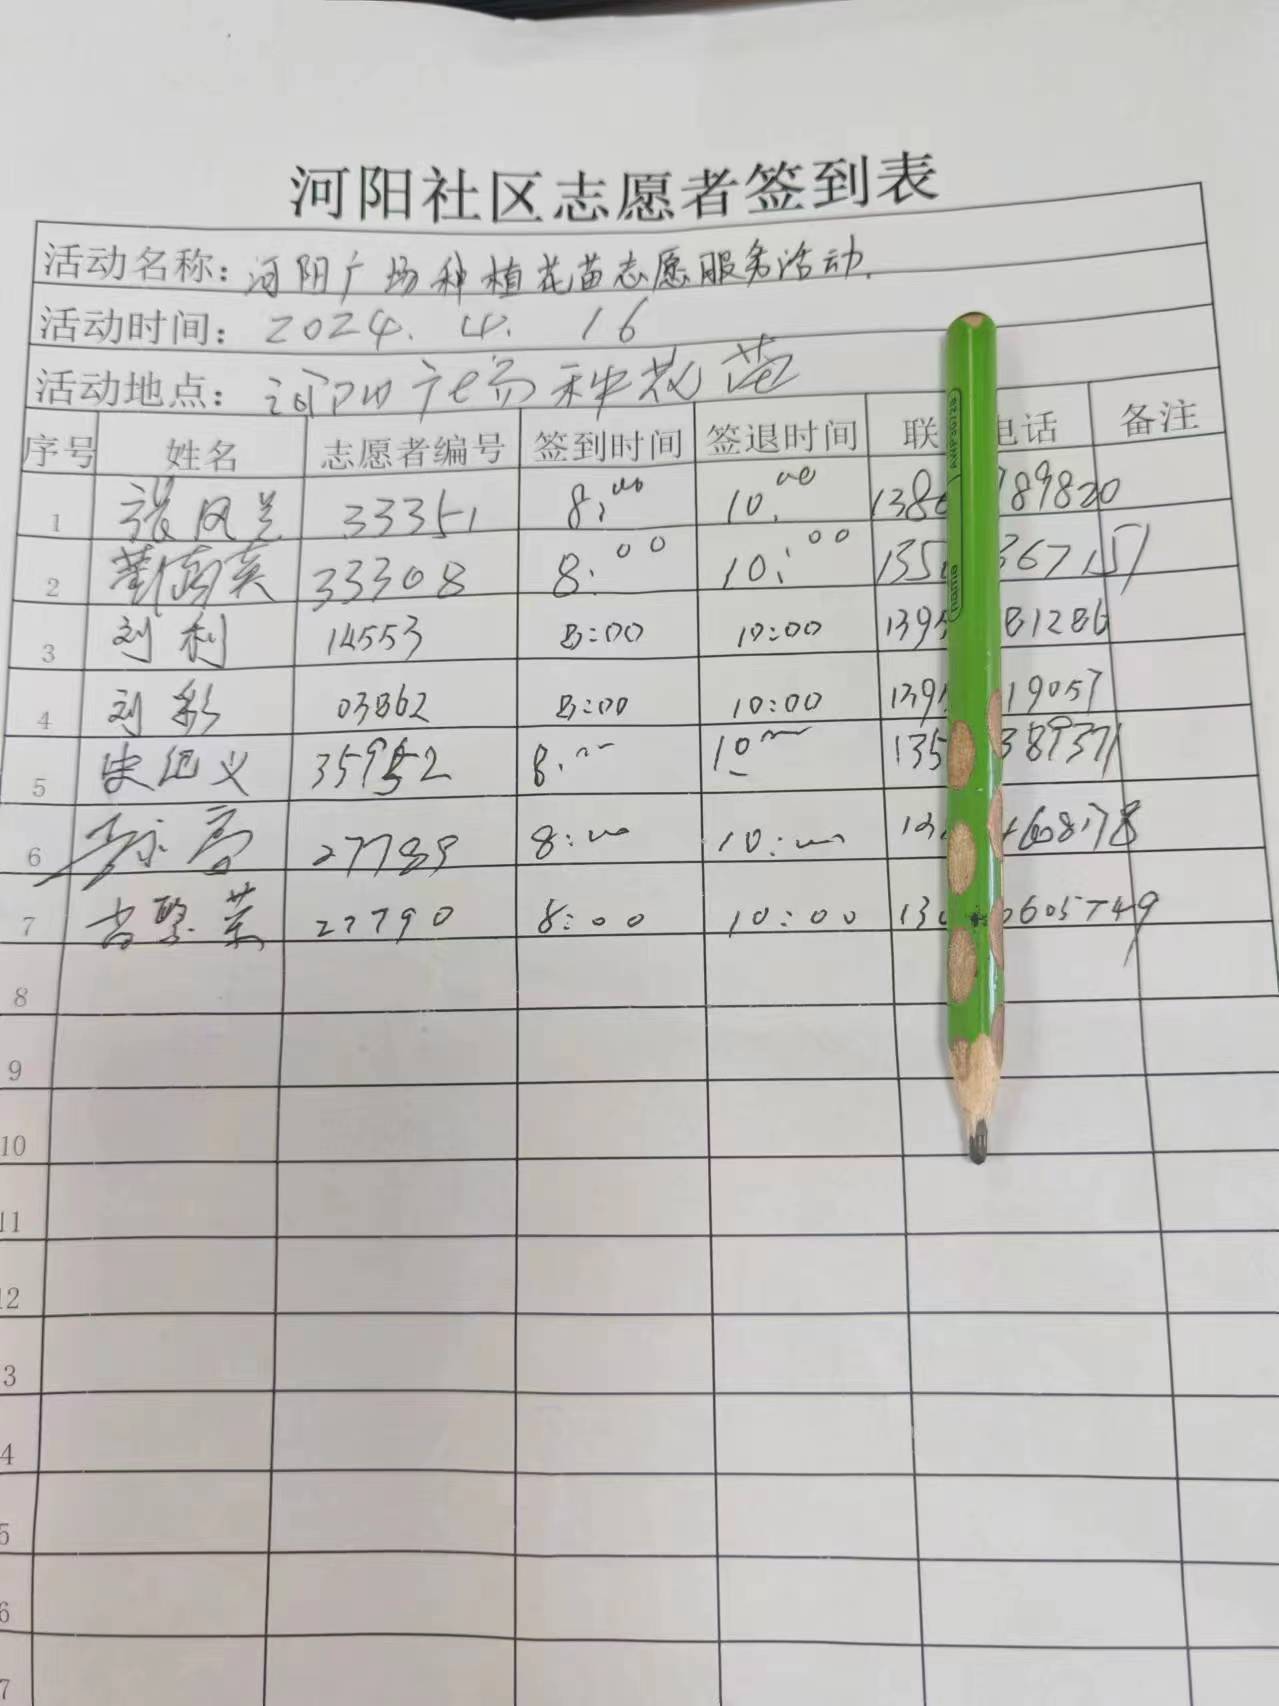 河阳社区志愿者签到表
活动名称：河阳广场种植花苗志愿服务活动.
活动时间：2024. 4. 16
活动地点：河阳广场种花苗
序号 姓名 志愿者编号 签到时间 签退时间 联 电话 备注
1 张凤兰 33351 8:00 10:00 138 789820
2 33308 8:00 10:00 135 367151
3 刘利 14553 8:00 10:00 139 81286
4 刘彩 03862 8:00 10:00 139 19057
5 史纪义 35952 8:00 10:00 135 389371
6 27789 8:00 10:00 13 608178
7 27790 8:00 10:00 13 605749
8
9
10
11
12
3
4
5
6
7